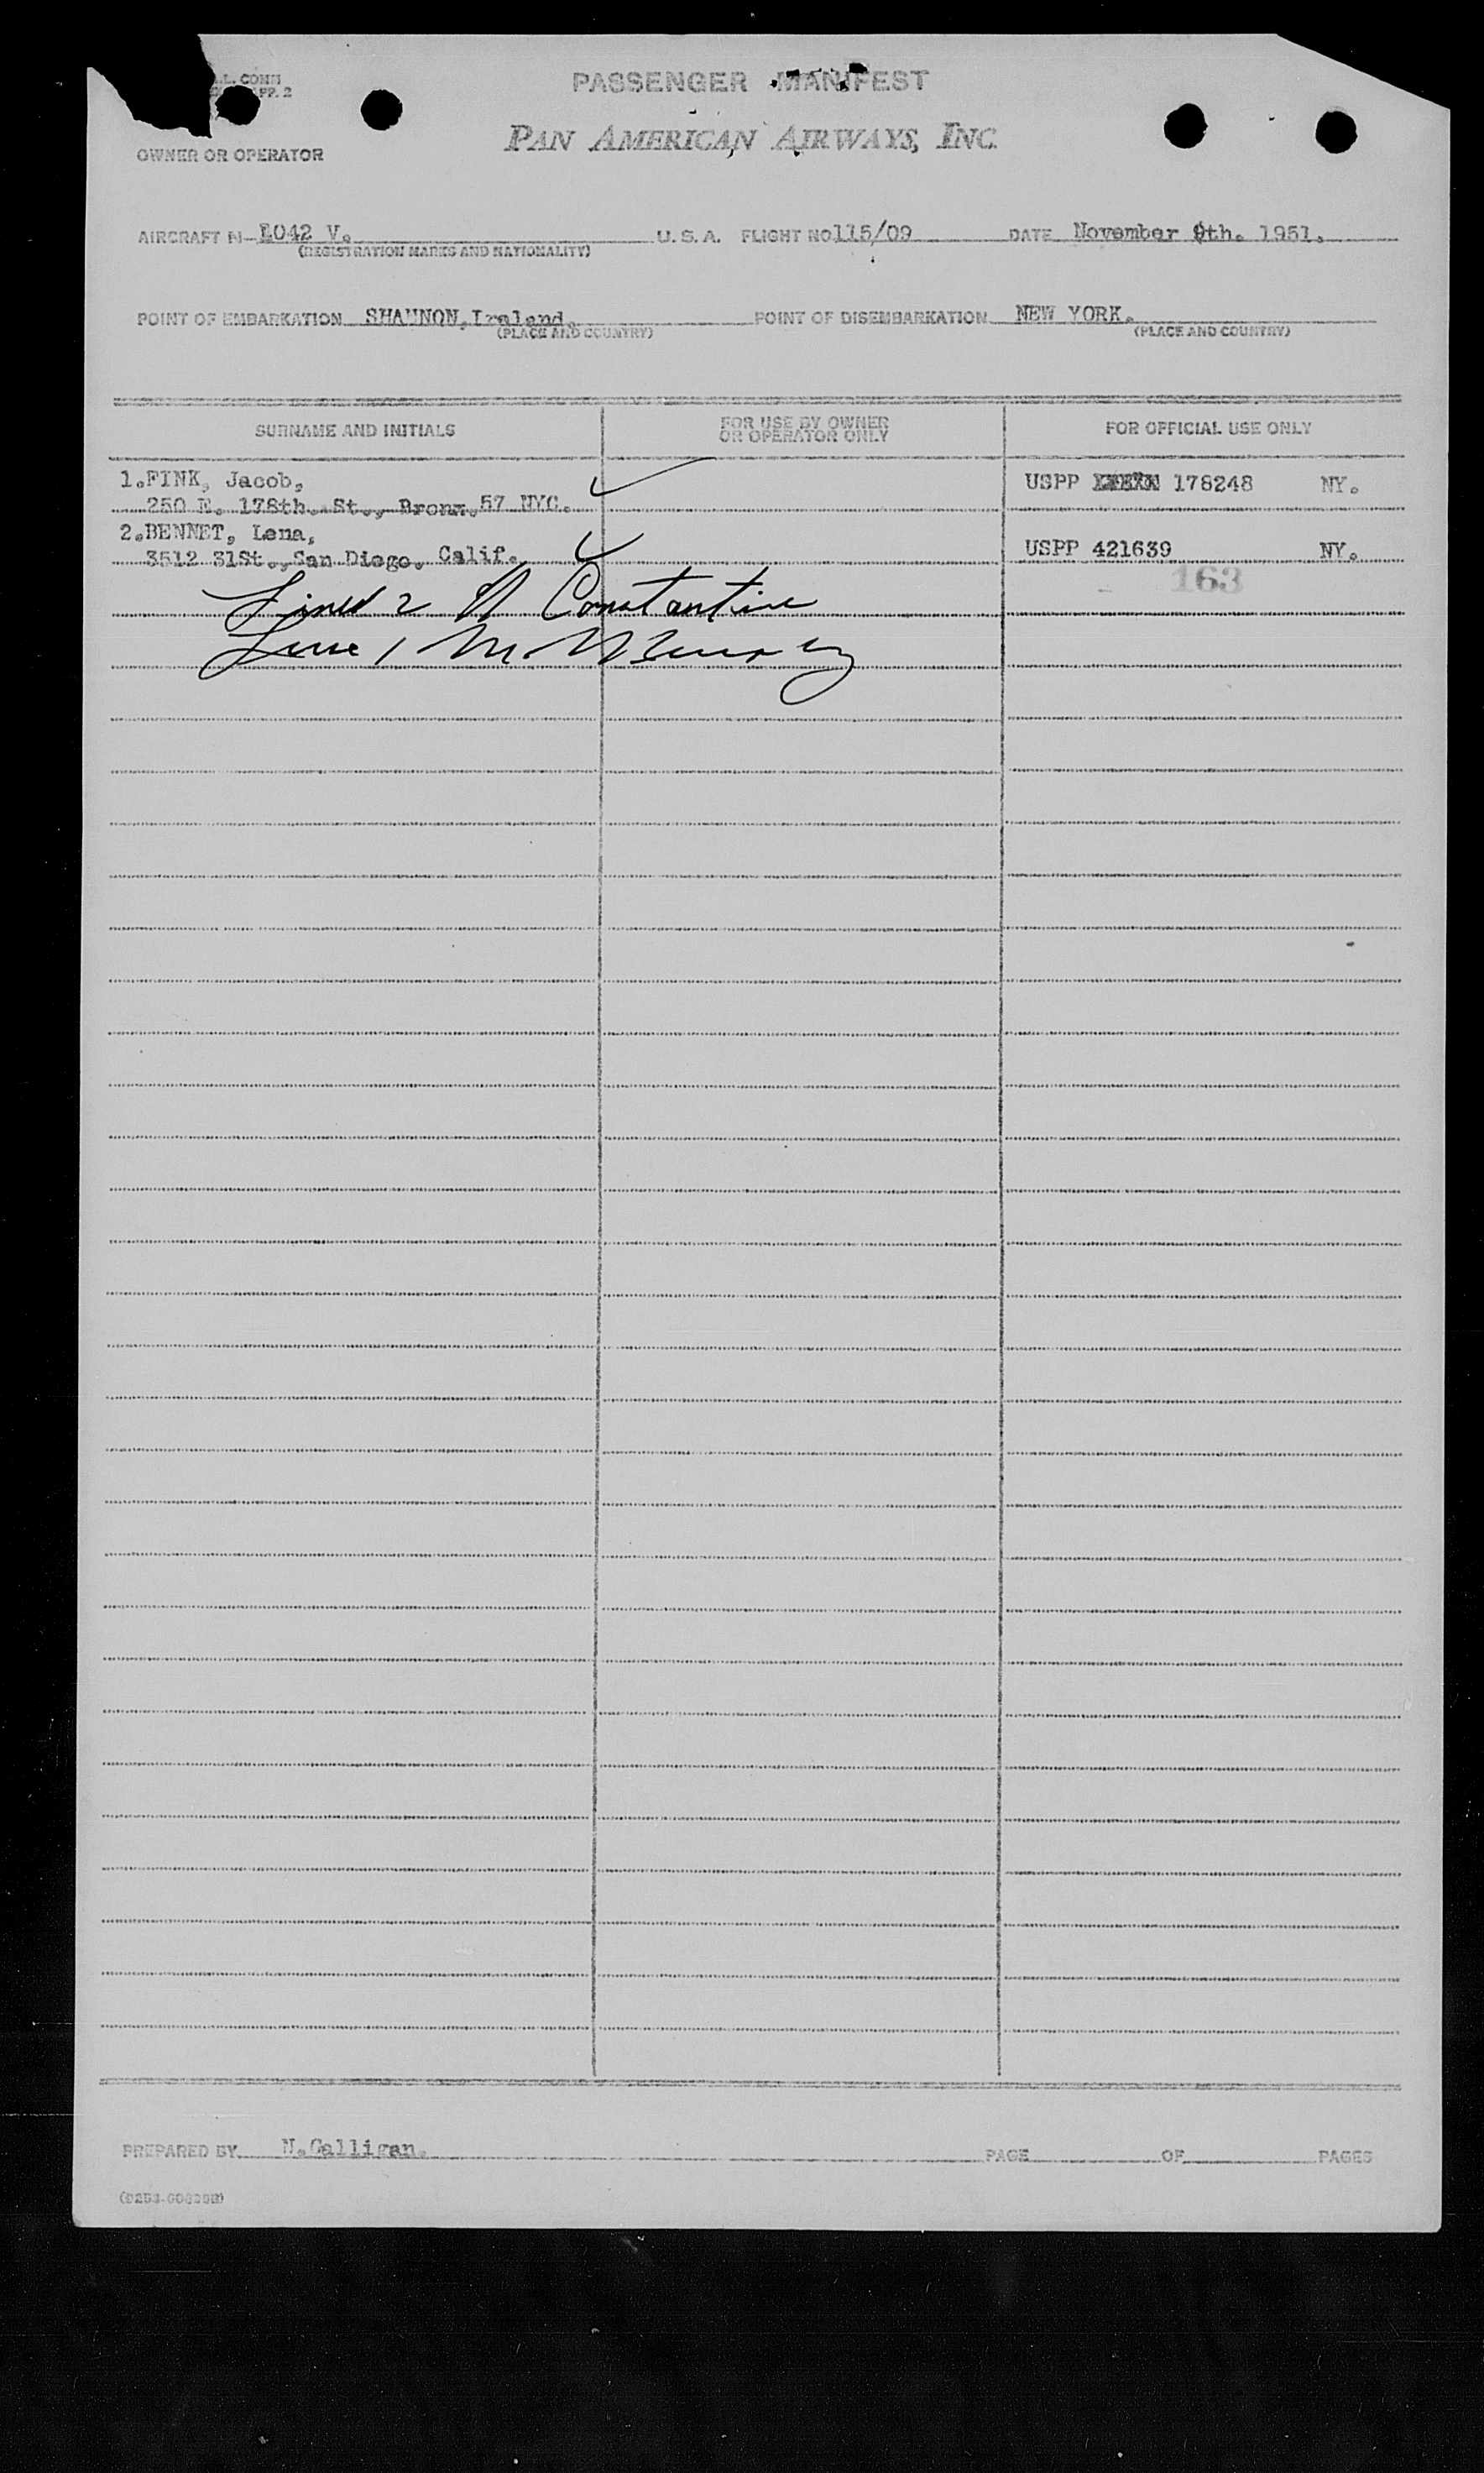 PASSENGER MANIFEST
PAN AMERICAN AIRWAYS, INC.
OWNER OR OPERATOR
AIRCRAFT N- 1042 V. U. S. A. FLIGHT NO 115/09 DATE November 9th. 1951.
(REGISTRATION MARKS AND NATIONALITY)
POINT OF EMBARKATION SHANNON, Ireland. POINT OF DISEMBARKATION NEW YORK.
(PLACE AND COUNTRY) (PLACE AND COUNTRY)
SURNAME AND INITIALS FOR USE BY OWNER OR OPERATOR ONLY FOR OFFICIAL USE ONLY
1.FINK, Jacob, USPP 178248 NY.
250 E. 178th. St., Bronx,57 NYC.
2.BENNET, Lena,
3512 31St.,San Diego. Calif. USPP 421639 NY.
163
Line 2 Constantine
Line 1 M.
PREPARED BY N.Galligan. PAGE OF PAGES